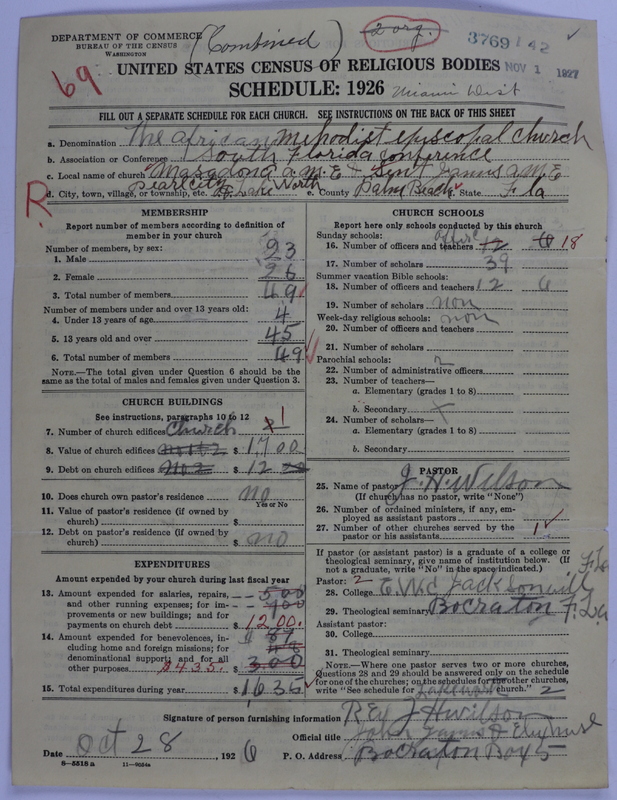 DEPARTMENT OF COMMERCE
BUREAU OF THE CENSUS
WASHINGTON
(Combined)
2 org.
3769 142
NOV 1 1927
69
UNITED STATES CENSUS OF RELIGIOUS BODIES
SCHEDULE: 1926
Miami West
FILL OUT A SEPARATE SCHEDULE FOR EACH CHURCH. SEE INSTRUCTIONS ON THE BACK OF THIS SHEET
a. Denomination The African Methodist episcopal church
b. Association or Conference South Florida Conference
c. Local name of church Masadona a.M.E + James a.M.E
R
d. City, town, village, or township, etc. Pearl City Lake Worth e. County Palm Beach f. State Fla
MEMBERSHIP
Report number of members according to definition of member in your church
Number of members, by sex:
1. Male 23
2. Female 26
3. Total number of members 49
Number of members under and over 13 years old:
4. Under 13 years of age 4
5. 13 years old and over 45
6. Total number of members 49
NOTE.—The total given under Question 6 should be the same as the total of males and females given under Question 3.
CHURCH BUILDINGS
See instructions, paragraphs 10 to 12
7. Number of church edifices Church 1
8. Value of church edifices $ 1,700
9. Debt on church edifices $ 12
10. Does church own pastor's residence no
Yes or No
11. Value of pastor's residence (if owned by church) $
12. Debt on pastor's residence (if owned by church) $ no
EXPENDITURES
Amount expended by your church during last fiscal year
13. Amount expended for salaries, repairs, and other running expenses; for improvements or new buildings; and for payments on church debt $ 500
1200.
14. Amount expended for benevolences, including home and foreign missions; for denominational support; and for all other purposes $435. $ 300
15. Total expenditures during year $ 1635
CHURCH SCHOOLS
Report here only schools conducted by this church
Sunday schools:
16. Number of officers and teachers 12 18
17. Number of scholars 39
Summer vacation Bible schools:
18. Number of officers and teachers 12 6
19. Number of scholars non
Week-day religious schools: non
20. Number of officers and teachers
21. Number of scholars
Parochial schools:
22. Number of administrative officers
23. Number of teachers—
a. Elementary (grades 1 to 8)
b. Secondary
24. Number of scholars—
a. Elementary (grades 1 to 8)
b. Secondary
PASTOR
25. Name of pastor J. H. Wilson
(If church has no pastor, write "None")
26. Number of ordained ministers, if any, employed as assistant pastors
27. Number of other churches served by the pastor or his assistants 1
If pastor (or assistant pastor) is a graduate of a college or theological seminary, give name of institution below. (If not a graduate, write "No" in the space indicated.)
Pastor: 2
28. College Jacksonvill Fla
29. Theological seminary Bocraton Fla
Assistant pastor:
30. College
31. Theological seminary
NOTE.—Where one pastor serves two or more churches, Questions 28 and 29 should be answered only on the schedule for one of the churches; on the schedules for the other churches, write "See schedule for church." 2
Signature of person furnishing information REV J H Wilson
Official title
Date Oct 28, 1926 P. O. Address Bocraton Box 5
8—5518 a 11—9034a